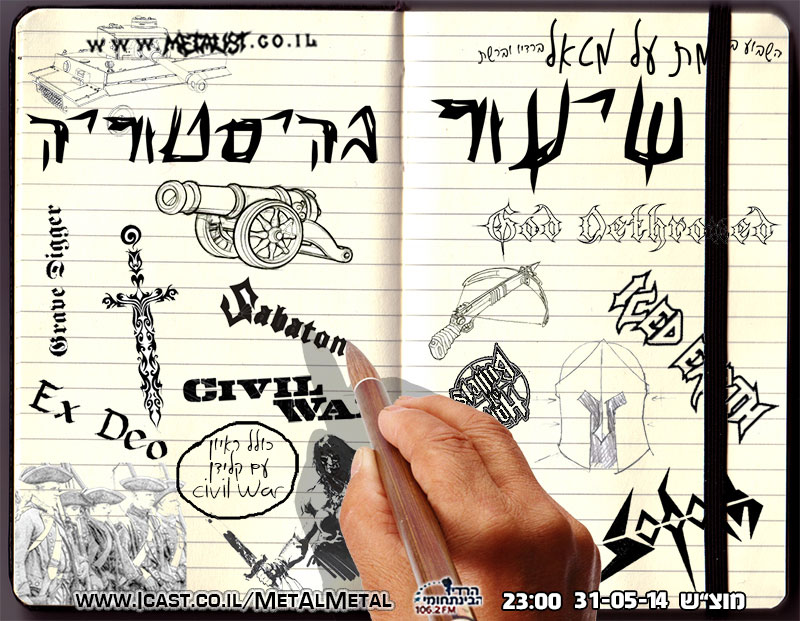 www.METALIST.CO.IL
השבוע ב מת על מטאל ברדיו וברשת
שיעור בהיסטוריה
God Dethroned
Grave Digger
Sabaton
Iced Earth
Civil
War
Ex Deo
כולל ראיון
עם קלידן
civil war
Sodom
www.Icast.co.il/MetAlMetal
הרדיו
הבינתחומי
106.2FM
מוצ״ש 31-05-14 23:00